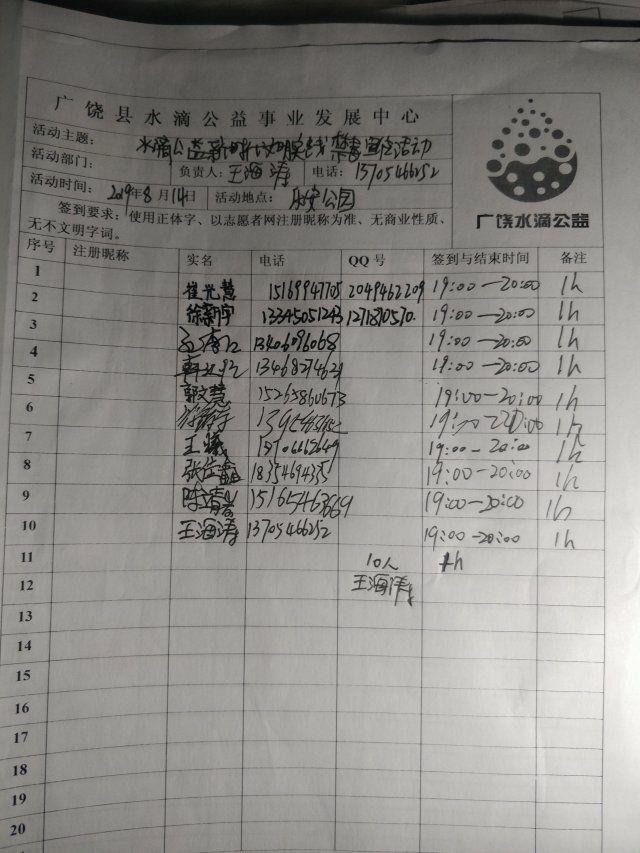 广饶县水滴公益事业发展中心
活动主题: 水滴公益 禁毒宣传活动
活动部门: 负责人:王海涛 电话:13705466252
活动时间: 2019年8月14日 活动地点: 乐安公园
签到要求:使用正体字、以志愿者网注册昵称为准、无商业性质、
无不文明字词。
广饶水滴公益
序号 注册昵称 实名 电话 QQ号 签到与结束时间 备注
1 崔光慧 15169947705 2049462209 19:00—20:00 1h
2 徐新宇 13345051243 1271870570 19:00—20:00 1h
3 13406096068 19:00—20:00 1h
4 13468274629 19:00—20:00 1h
5 郭文慧 15265860673 19:00—20:00 1h
6 1h
7 王 19:00-20:00 1h
8 张 19:00-20:00 1h
9 陈 19:00-20:00 1h
10 王海涛 13705466252 19:00-20:00 1h
11 10人 1h
12 王海涛
13
14
15
16
17
18
19
20